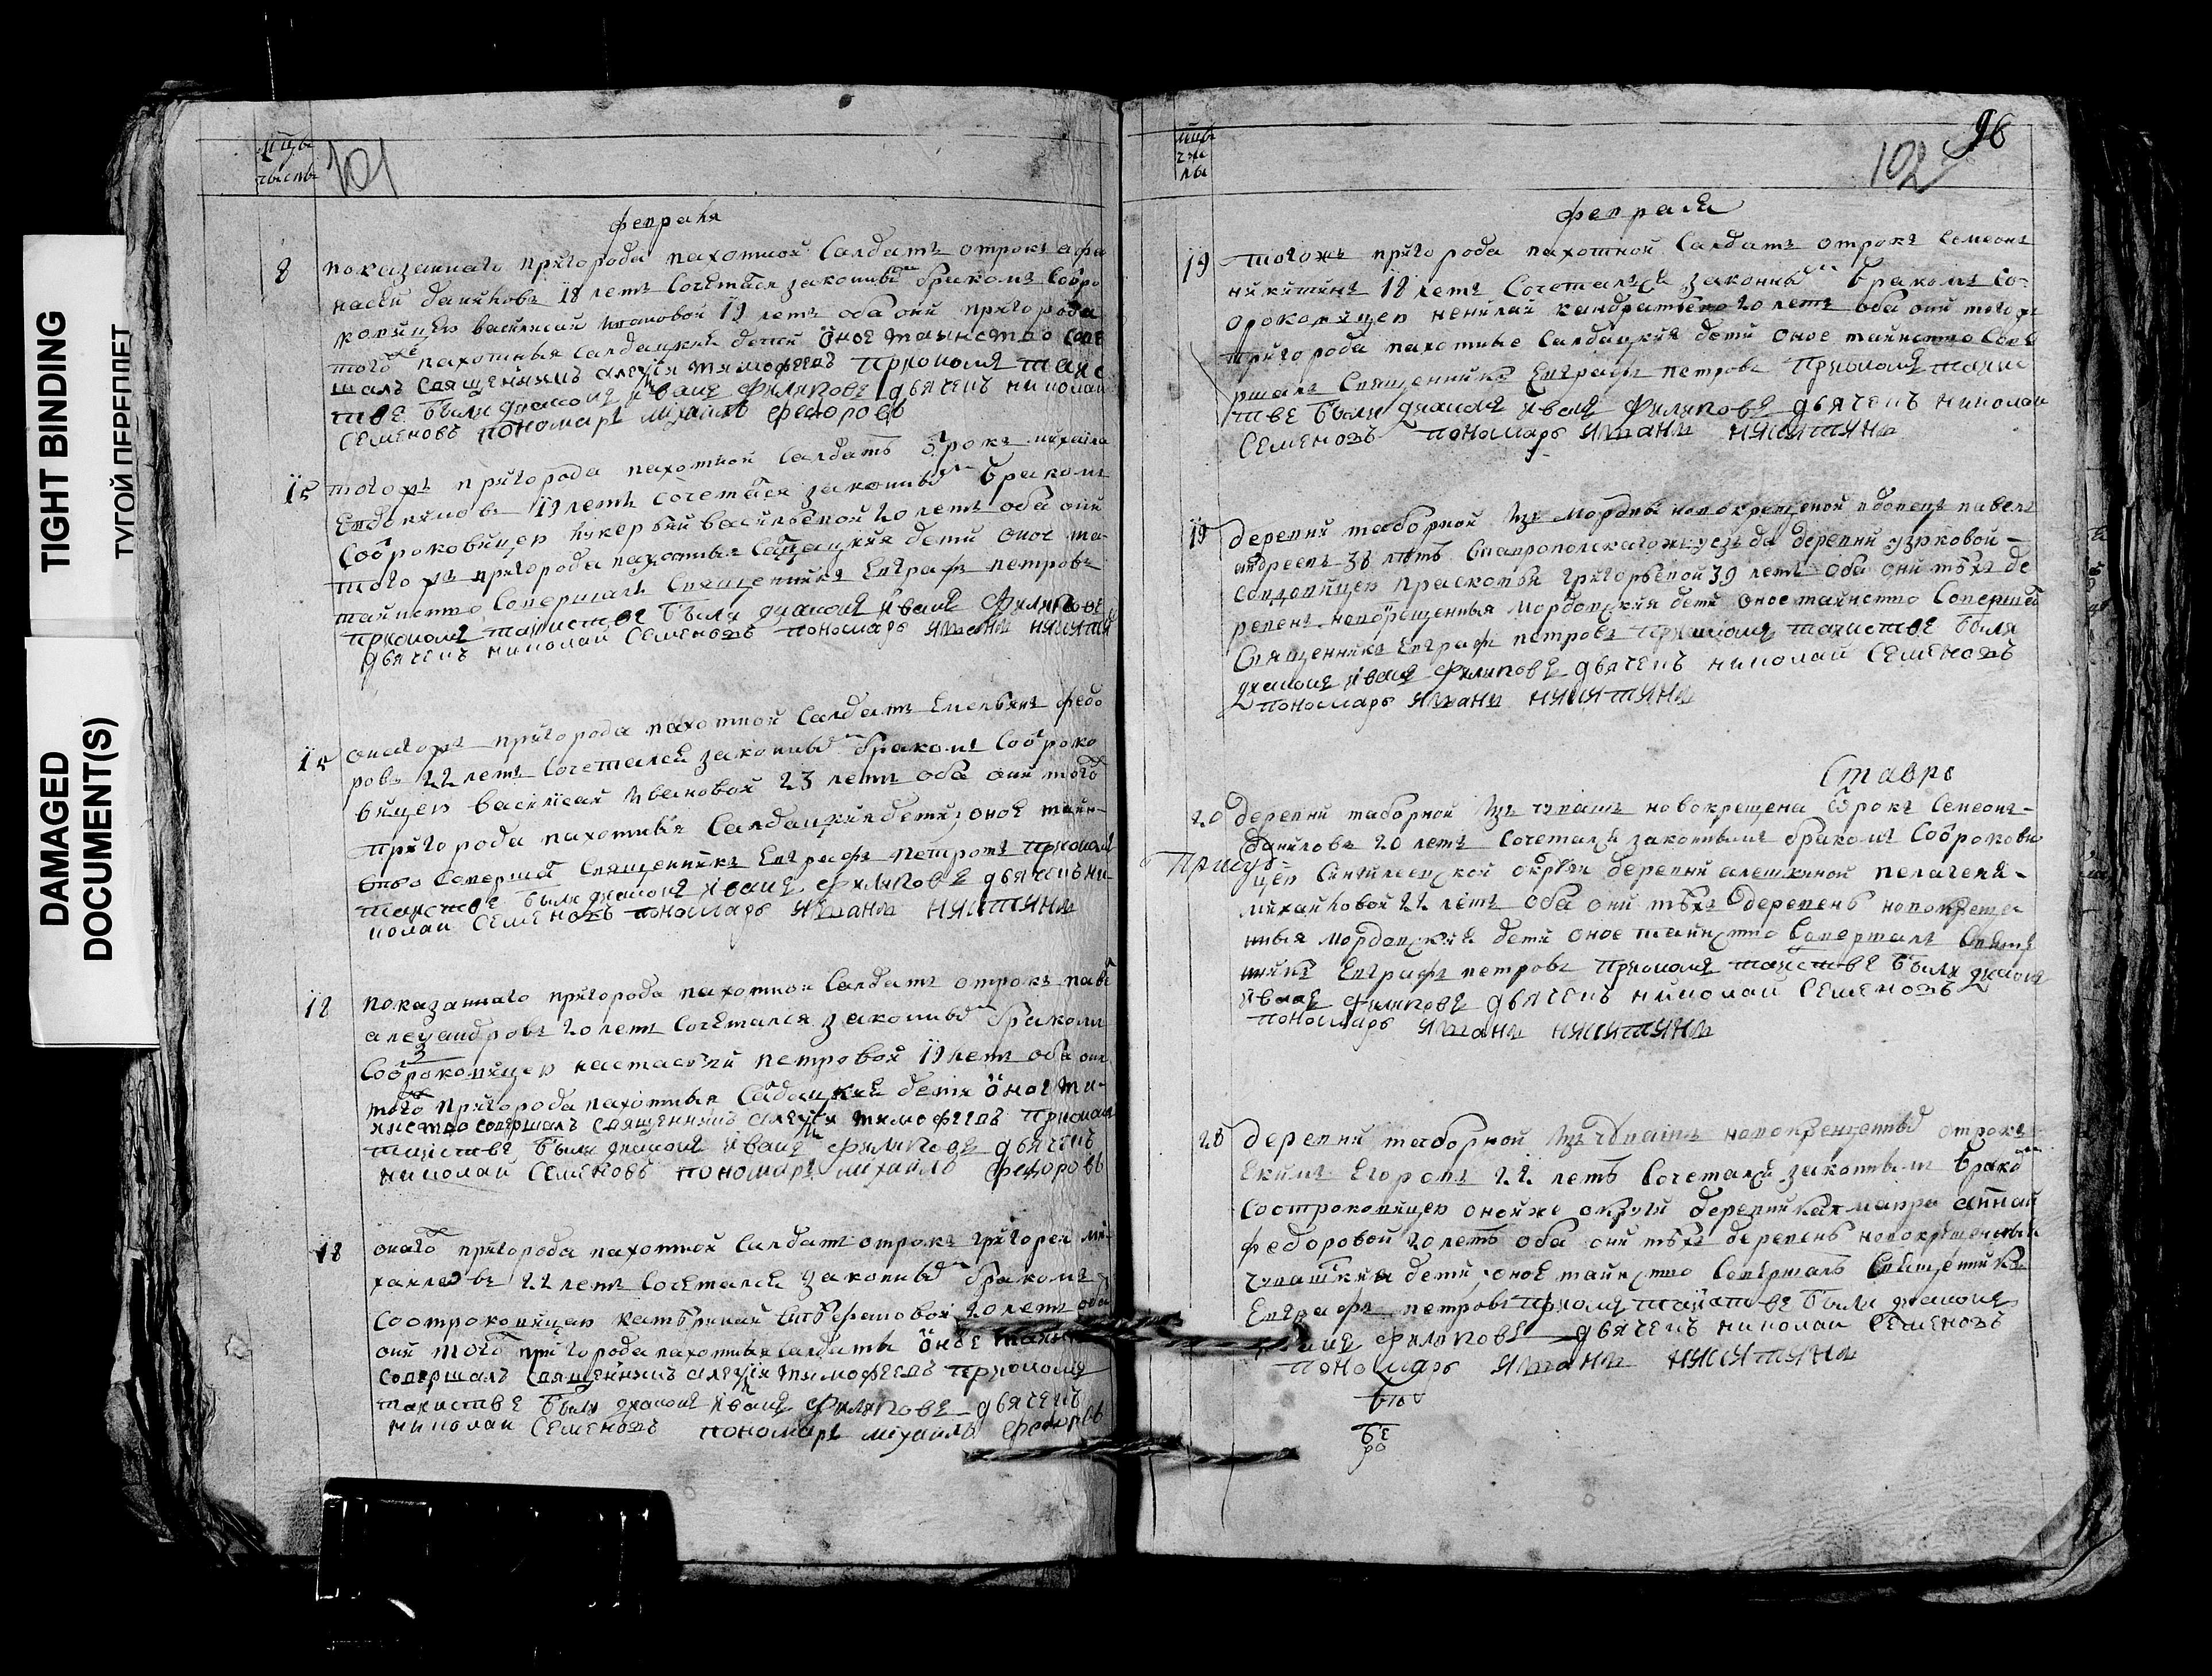 DAMAGED
DOCUMENT(S)
TIGHT BINDING
ТУГОЙ ПЕРЕПЛЕТ
101
февраля
8 показаннаго пригорода пахотной салдатъ отрокъ афа
насей 18 летъ сочетался законны браком собро
ковицею василисай ивановой 19 летъ оба они пригорода
того пахотныя салдацкия дети оное таинство сове
шалъ священникъ алеѯiя тимофеевъ при ономъ таис
тве были диаконъ иванъ филиповъ дьячекъ николаи
семеновъ пономарь михаилъ федоровъ
15 тогожъ пригорода пахотной салдатъ отрокъ михаила
19 летъ сочетался законны браком
соброковицею васильевой 20 летъ оба они
тогожъ пригорода пахотныя салдацкия дети оное та
таинство совершалъ священникъ Евграфъ петровъ
при ономъ таинстве были диаконъ иванъ филиповъ
дьячекъ николаи семеновъ пономарь иванъ никитинъ
15 пригорода пахотной салдатъ Емельянъ федо
ровъ 22 летъ сочетался законны браком соброко
вицею василисай ивановой 23 летъ оба они того
пригорода пахотныя салдацкия дети оное таин
ство совершалъ священникъ Евграфъ петровъ при ономъ
таинстве были диаконъ иванъ филиповъ дьячекъ ни
колаи семеновъ пономарь иванъ никитинъ
18 показаннаго пригорода пахотной салдатъ отрокъ паве
алеѯандровъ 20 летъ сочетался законны браком
соброковицею настасьей петровой 19 летъ оба они
того пригорода пахотныя салдацкия дети оное та
инство совершалъ священникъ алеѯiя тимофеевъ при ономъ
таинстве были диаконъ иванъ филиповъ дьячекъ
николаи семеновъ пономарь михаило федоровъ
18 онаго пригорода пахотной салдатъ отрокъ григореи ми
хаиловъ 22 летъ сочетался законны браком
соотроковицею катериной 20 летъ оба
они того пригорода пахотныя салдаты оное таин
совершалъ священникъ алеѯiя тимофеевъ при ономъ
таинстве были диаконъ иванъ филиповъ дьячекъ
николаи семеновъ пономарь михаилъ федоровъ
96
102
февраля
19 тогожъ пригорода пахотной салдатъ отрокъ семеонъ
никитинъ 18 летъ сочетался законны браком со
отроковицею ненилай кандратьево 20 летъ оба они тогожъ
пригорода пахотные салдацкия дети оное таинство сове
ршалъ священникъ Евграфъ петровъ при ономъ таинс
тве были диаконъ иванъ филиповъ дьячекъ николаи
семеновъ пономарь иванъ никитинъ
19 деревни таборной изъ мордвы новокрещеной вдовецъ павелъ
андреевъ 38 летъ ставропольскагожъ уезда деревни узюковой
совдовицею прасковьи григорьевой 39 летъ оба они тѣхъ де
ревень новокрещенныя мордовския дети оное таинство совершал
священникъ Евграфъ петровъ при ономъ таинстве были
диаконъ иванъ филиповъ дьячекъ николаи семеновъ
пономарь иванъ никитинъ
Ставро
20 деревни таборной изъ чувашъ новокрещена отрокъ семеонъ
даниловъ 20 летъ сочетался законным браком соброкови
цею округи деревни алешкиной пелагеей
михайловой 22 летъ оба они тѣхъ деревень новокреще
нныя мордовския дети оное таинство совершалъ священ
никъ Евграфъ петровъ при ономъ таинстве были диаконъ
иванъ филиповъ дьячекъ николаи семеновъ
пономарь иванъ никитинъ
20 деревни таборной изъ чувашъ новокрещенны отрокъ
Екимъ Егоровъ 22 летъ сочетался законным браком
соотроковицею онойже округи деревни аннай
федоровой 20 летъ оба они тѣхъ деревень новокрещеныи
чувашския дети оное таинство совершалъ священникъ
Евграфъ петровъ при ономъ таинстве были диаконъ
филиповъ дьячекъ николаи семеновъ
пономарь иванъ никитинъ